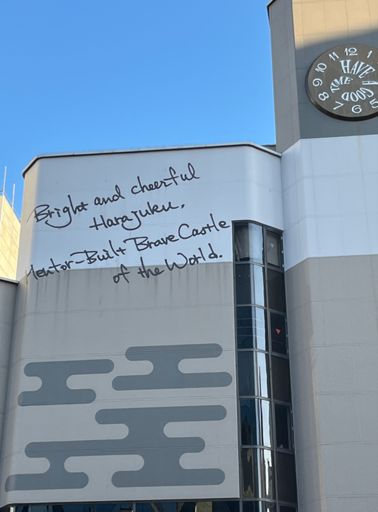 Bright and cheerful
Harajuku,
Mentor-Built Brave Castle
of the World.
12
1
11
10
9
8
7
6
5
HAVE
A
GOOD
TIME